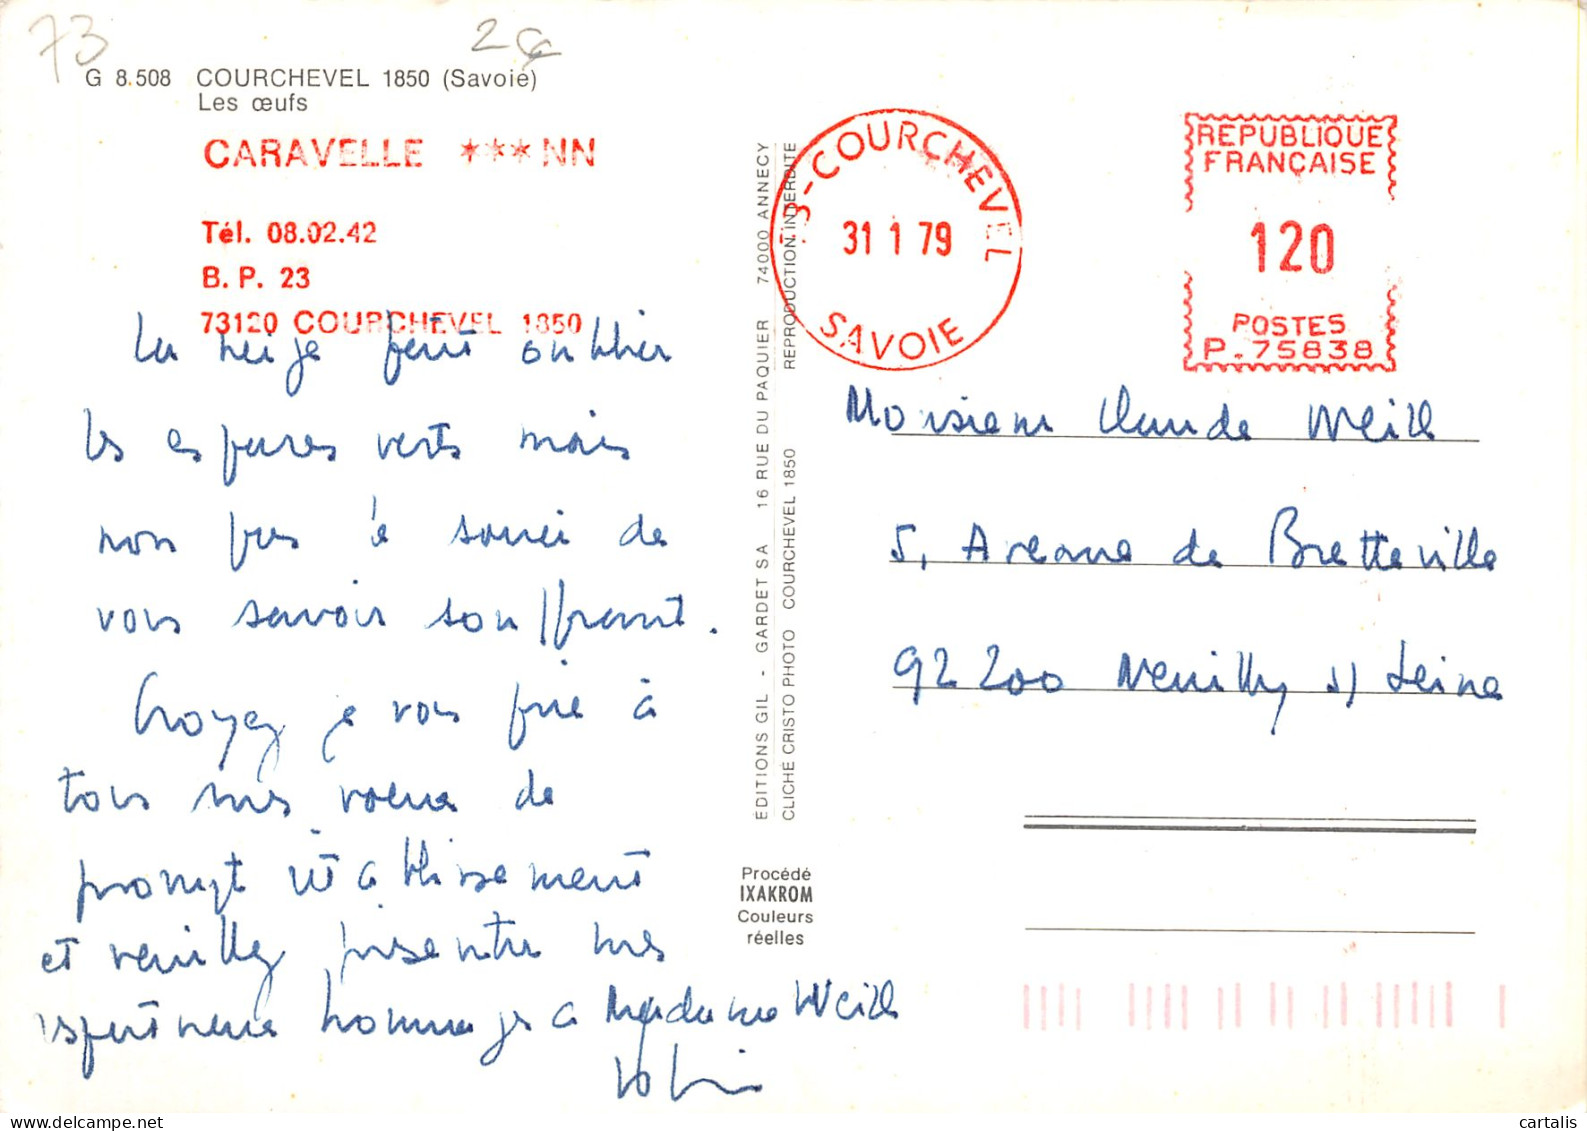 73
2
G 8.508 COURCHEVEL 1850 (Savoie)
Les œufs
CARAVELLE ***NN
Tél. 08.02.42
B. P. 23
73120 COURCHEVEL 1850
La neige fait oublier
les espaces verts mais
non pas le souci de
vous savoir souffrant.
Croyez je vous prie à
tous mes voeux de
prompt rétablissement
et veuillez présenter mes
respectueux hommages à Madame Weill
EDITIONS GIL - GARDET SA 16 RUE DU PAQUIER 74000 ANNECY
CLICHÉ CRISTO PHOTO COURCHEVEL 1850 REPRODUCTION INTERDITE
Procédé
IXAKROM
Couleurs
réelles
73-COURCHEVEL
31 1 79
SAVOIE
REPUBLIQUE
FRANÇAISE
120
POSTES
P.75838
Monsieur Claude Weill
5, Avenue de Bretteville
92200 Neuilly s/ Seine
cartalis